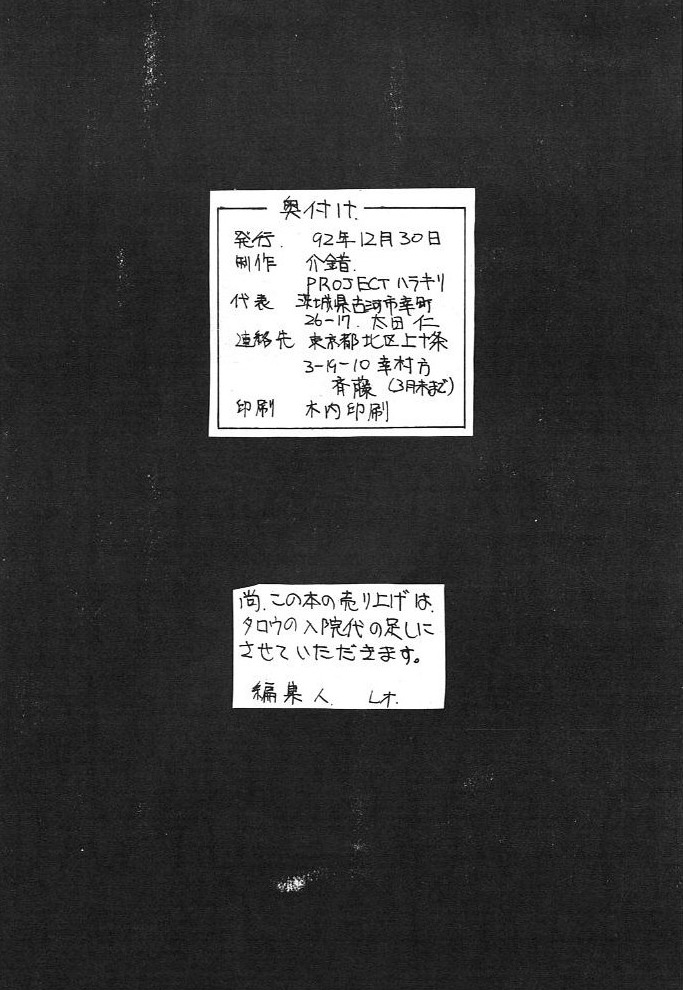 奥付け.
発行. 92年12月30日
制作 介錯.
PROJECT ハラキリ
代表 茨城県古河市幸町
26-17. 太田 仁
連絡先 東京都北区上十条
3-19-10 幸村方
斉藤 (3月末まで)
印刷 木内印刷
尚.この本の売り上げは、
タロウの入院代の足しに
させていただきます。
編集人. レオ.